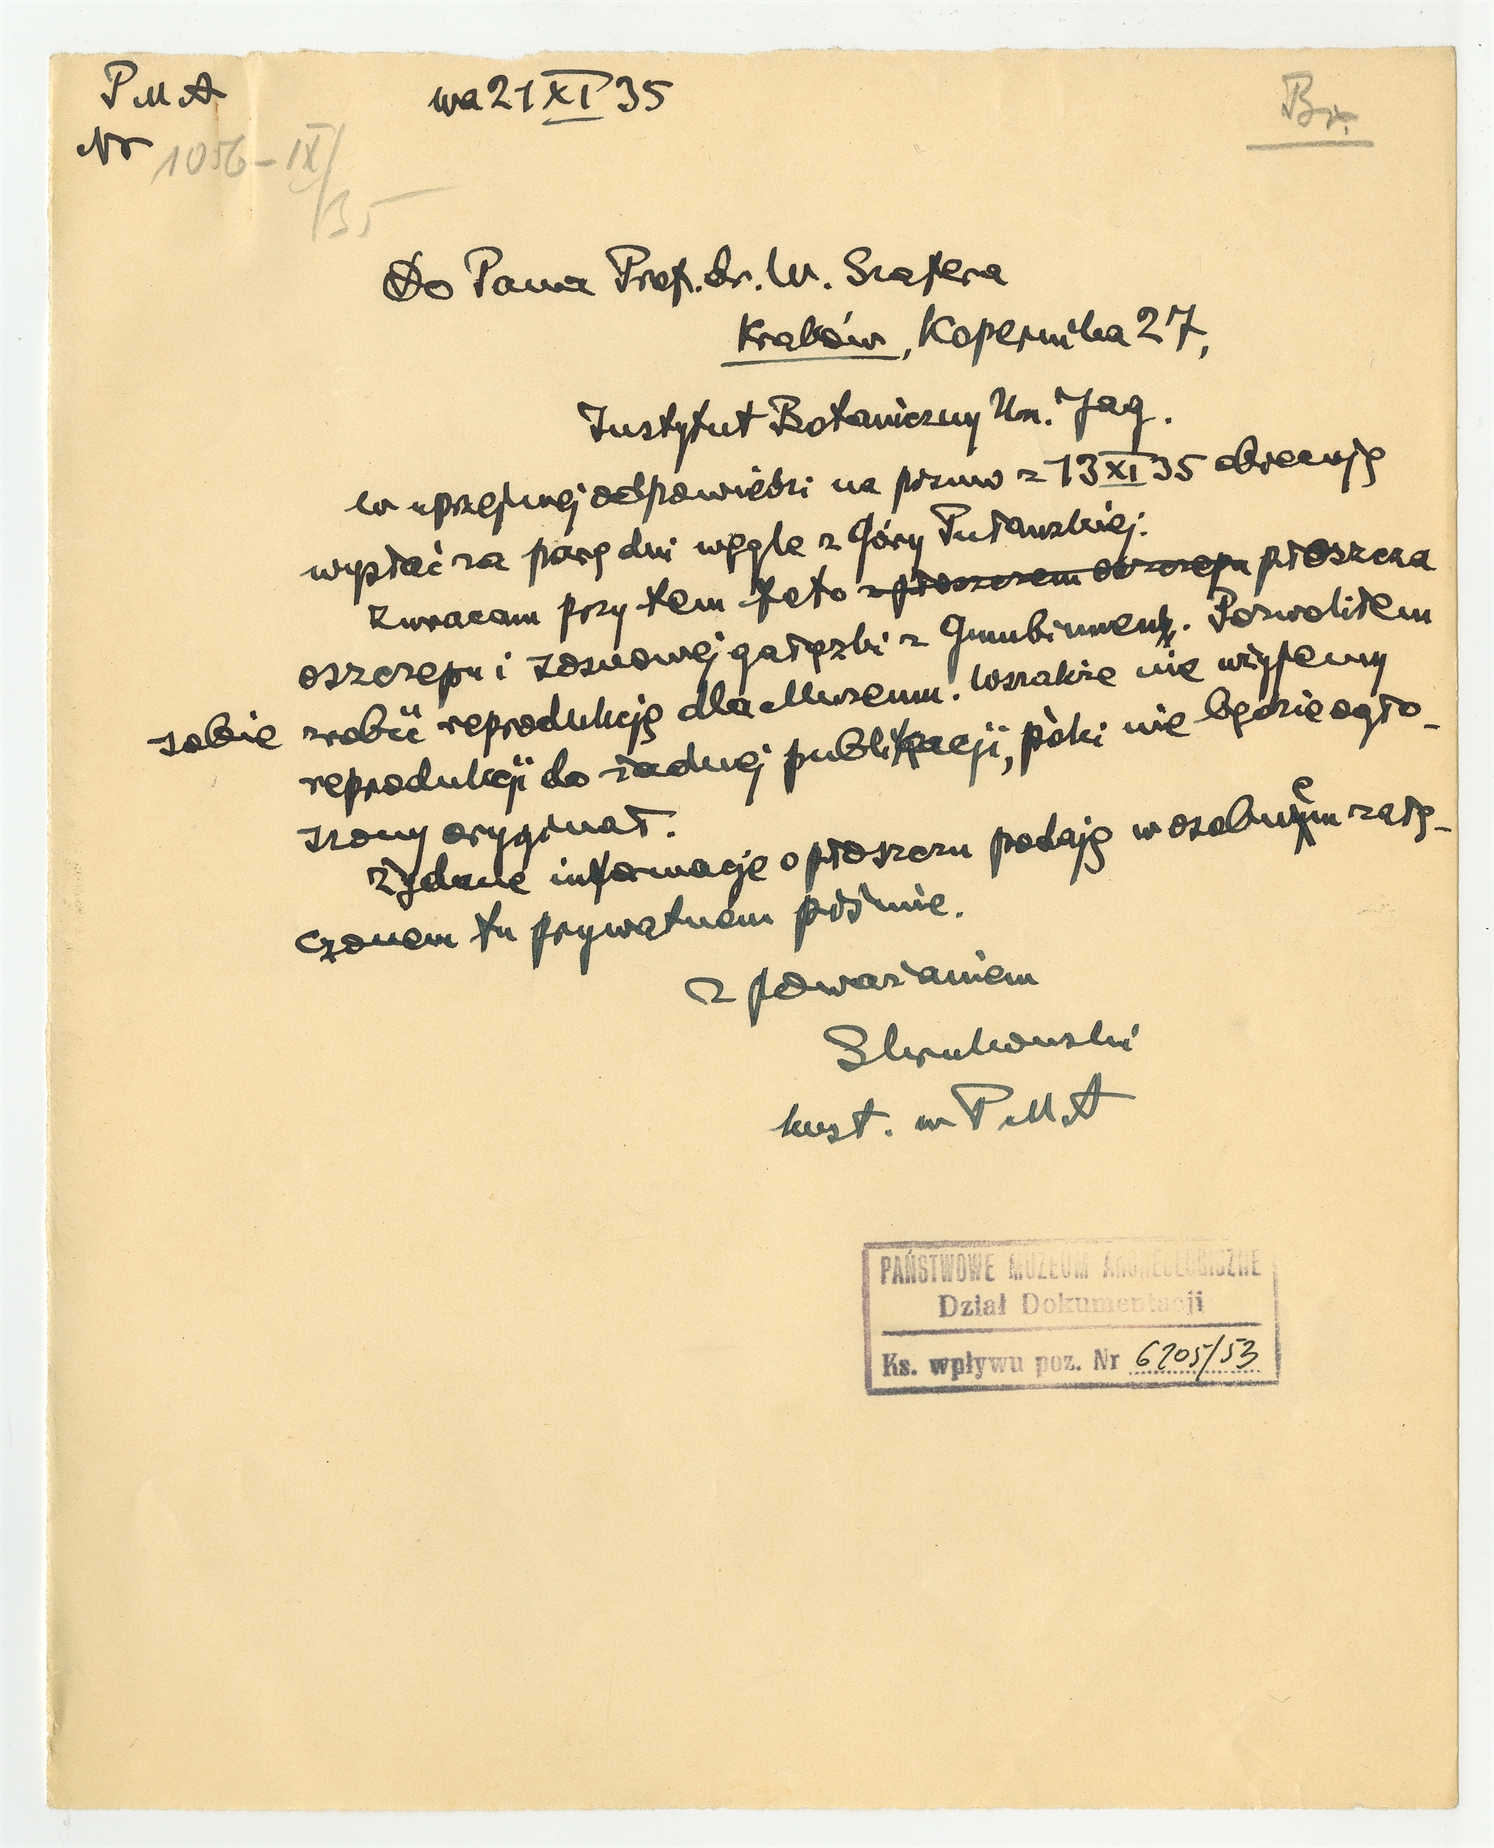 PMA wa 21 XI 35 Br.
Nr 1056-IX/35
Do Pana Prof. dr. W. Szafera
Kraków, Kopernika 27,
Instytut Botaniczny Un. Jag.
W uprzejmej odpowiedzi na pismo z 13 XI 35 obiecuję
wysłać za parę dni węgle z Góry Puławskiej.
Zwracam przy tem foto z płoszczem oszczepu płoszcza
oszczepu i sosnowej gałązki z . Pozwoliłem
sobie zrobić reprodukcję dla Muzeum. Wszakże nie użyjemy
reprodukcji do żadnej publikacji, póki nie będzie ogło-
szony oryginał.
Żądane informacje o płoszczu podaję w osobnem załą-
czonem tu prywatnem piśmie.
Z poważaniem
kust. w PMA
PAŃSTWOWE MUZEUM ARCHEOLOGICZNE
Dział Dokumentacji
Ks. wpływu poz. Nr 6205/53